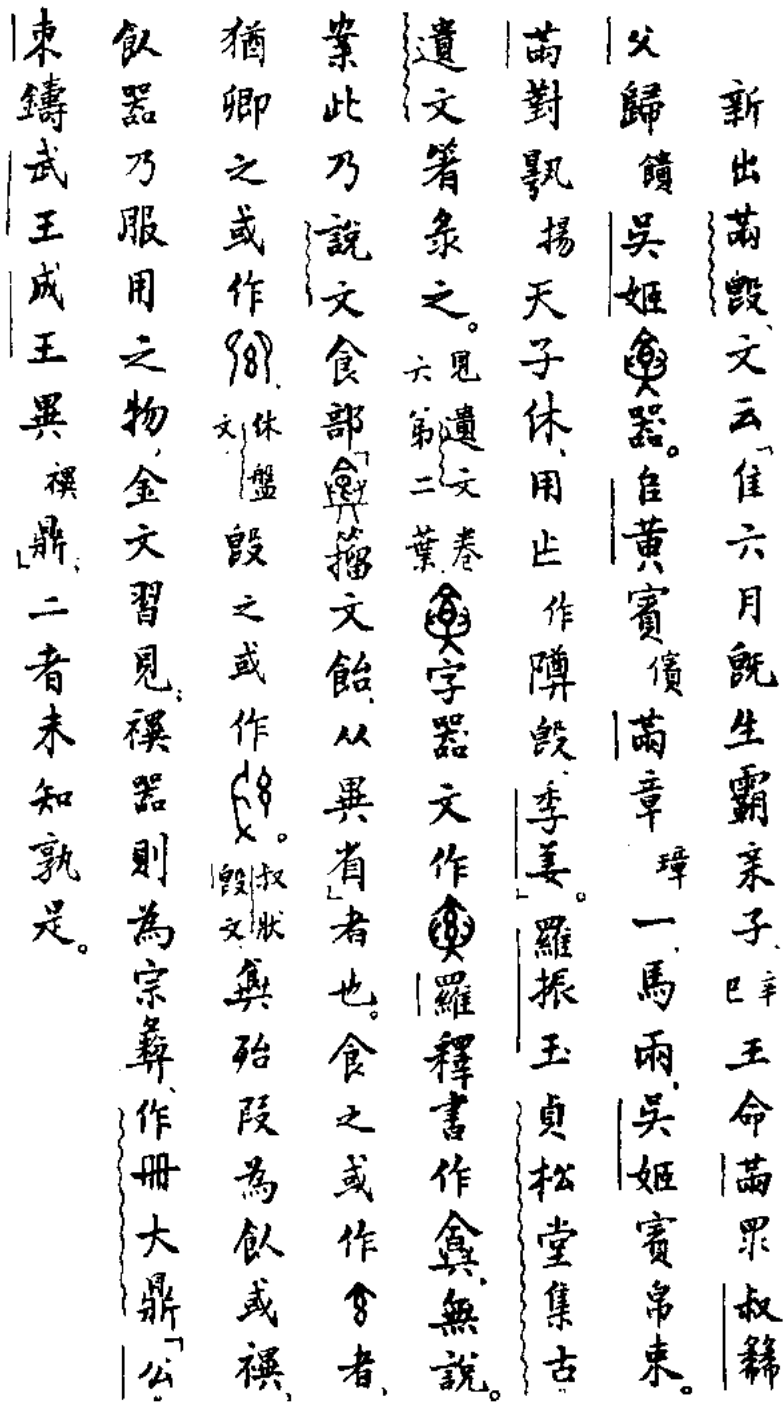 新出㒼𣪘、文云「隹六月既生霸亲辛子巳、王命㒼眔叔䋣
父歸饋吳姬器。𠂤黃賓儐㒼章璋一、馬兩、吳姬賓帛束。
㒼對𩰬揚天子休、用乍作𨺅𣪘、季姜」。羅振玉貞松堂集古
遺文箸彔之。見遺文卷六第二葉。字器文作羅釋書作、無說。
案此乃說文食部「籀文飴、从異省」者也。食之或作者、
猶卿之或作、休盤文。𣪘之或作。叔㹜𣪘文、殆叚為飤或禩、
飤器乃服用之物、金文習見；禩器則為宗彝、作冊大鼎「公
朿鑄武王成王異禩鼎」；二者未知孰是。